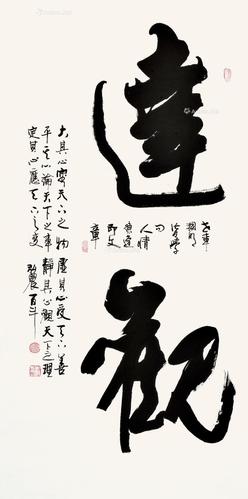 達觀
世事
洞明
皆學
问
人情
練達
即文
章
大其心受天下之物虛其心受天下善
平其心論天下之事靜其心觀天下之理
定其心應天下之變